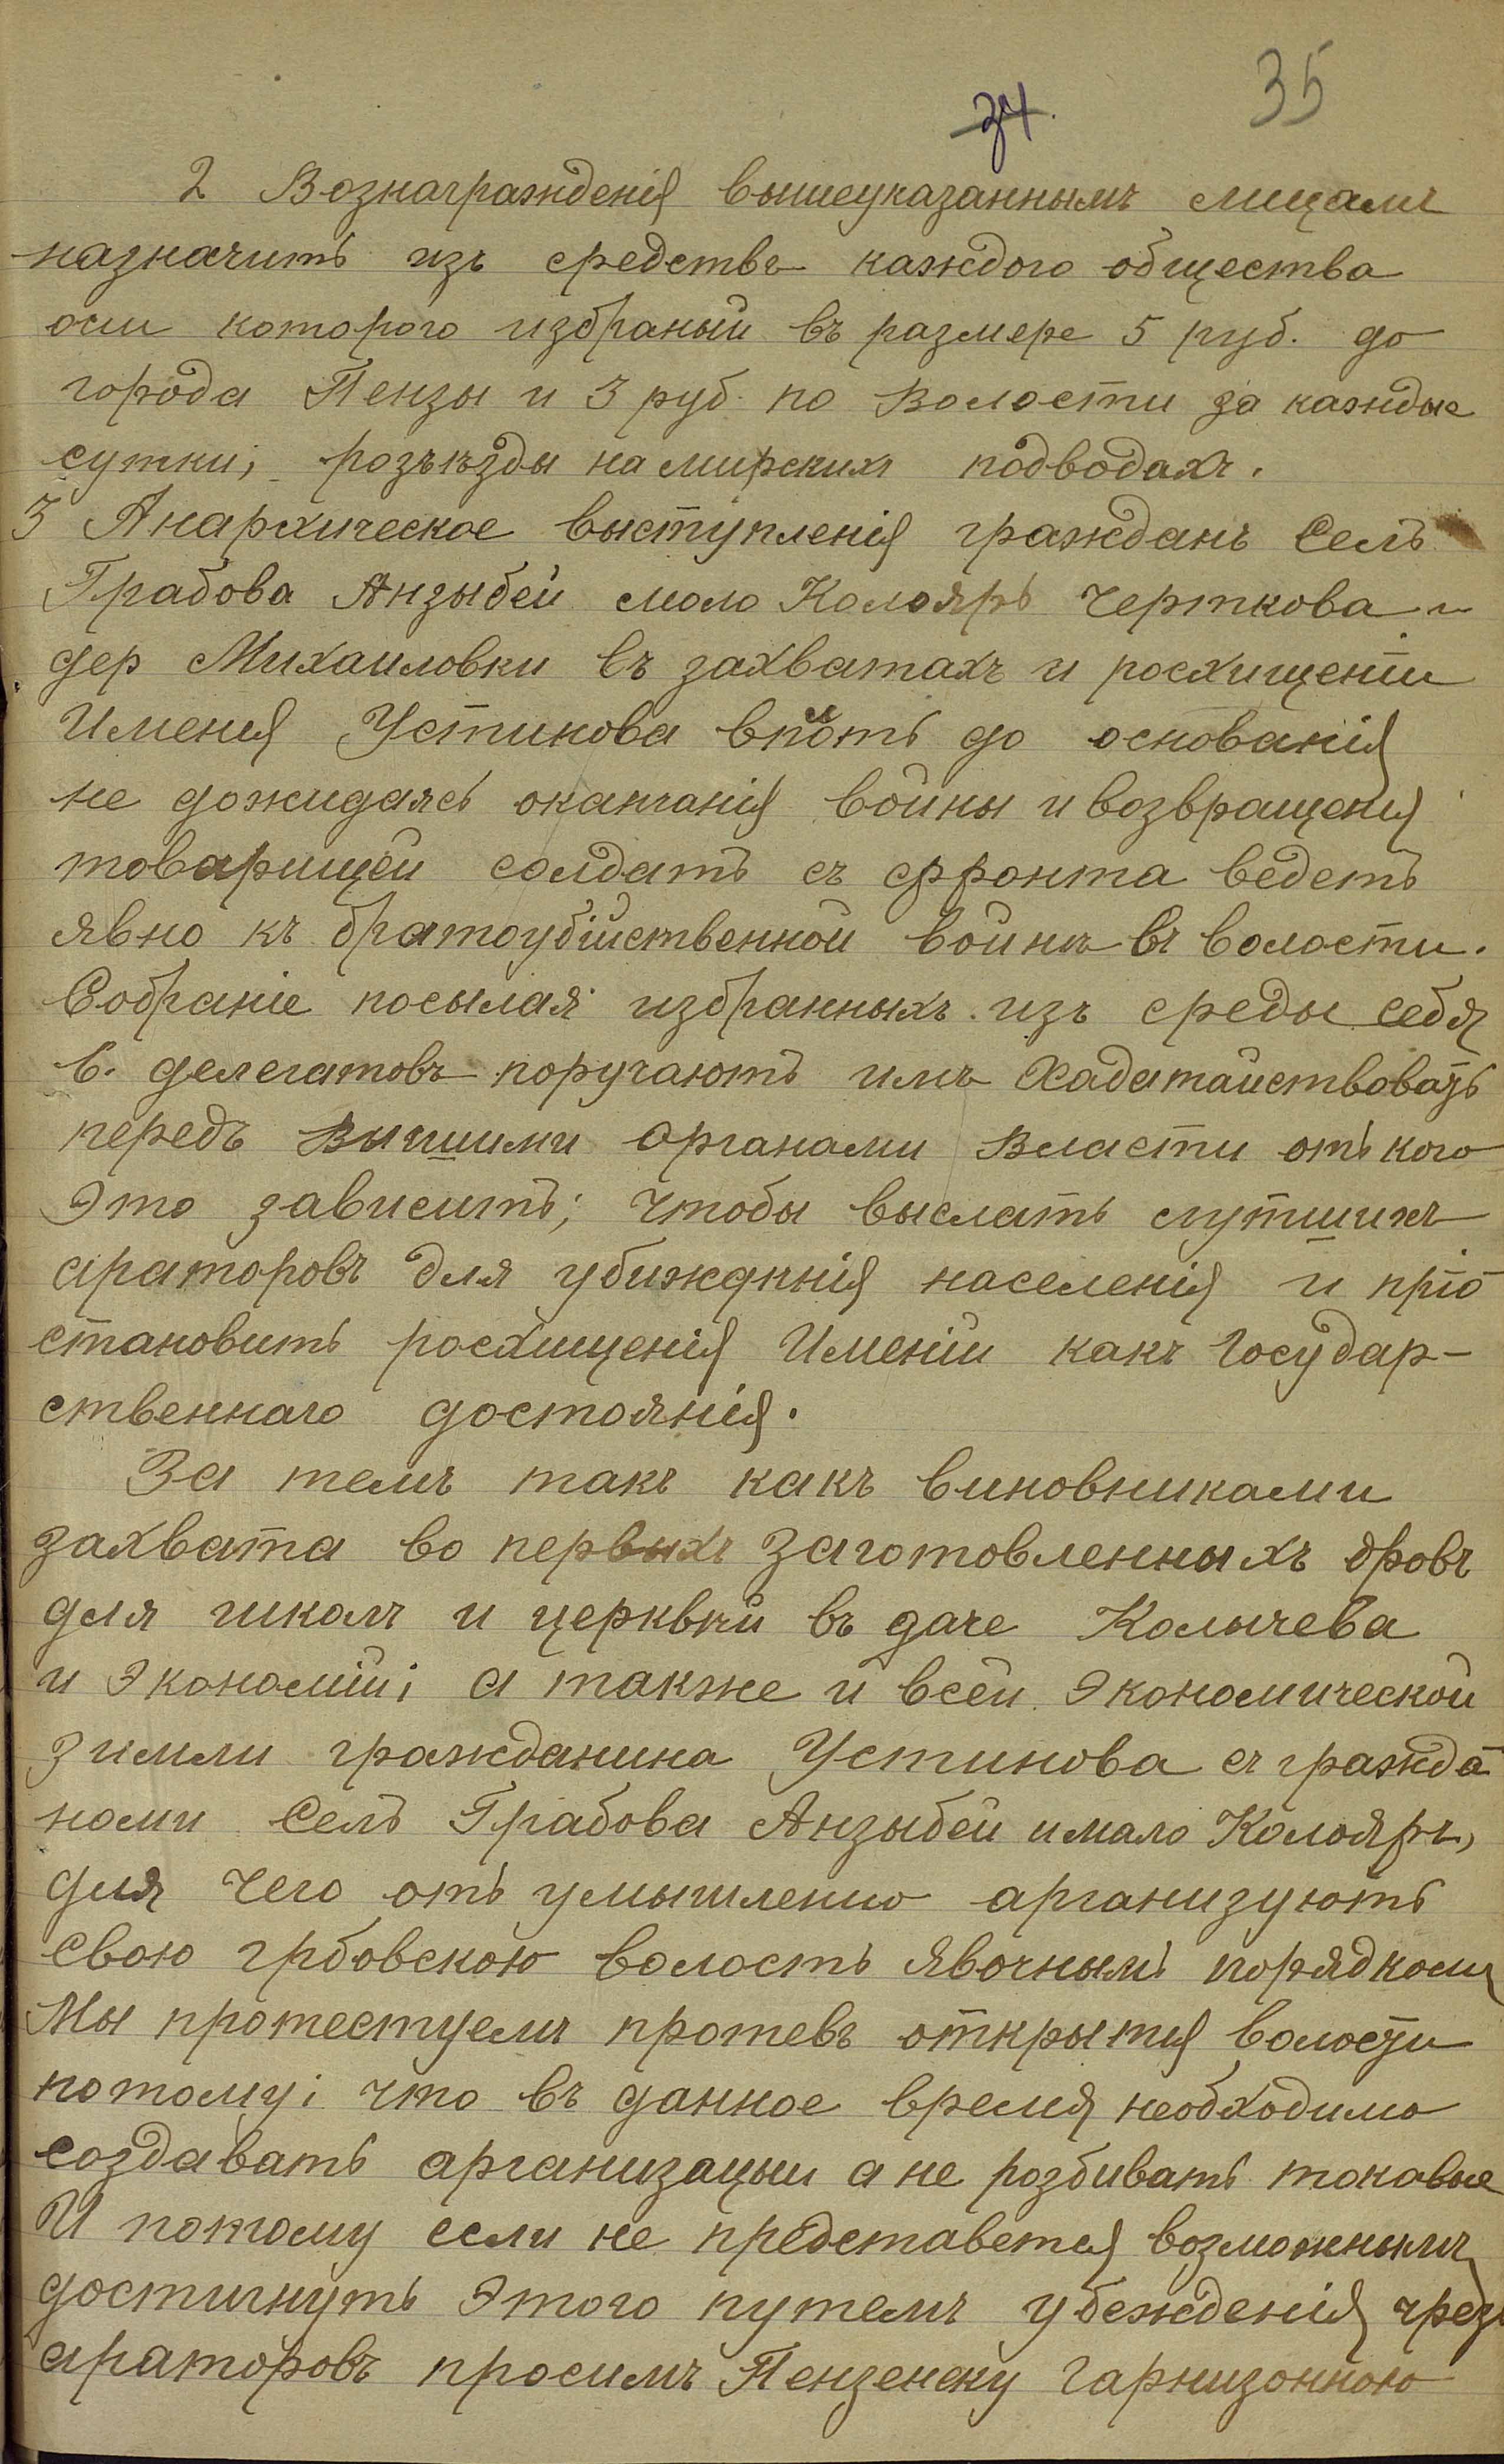 35
34.
2 Вознагражденія вышеуказаннымъ лицамъ
назначить изъ средствъ каждого общества
отъ которого избраный въ размере 5 руб. до
города Пензы и 3 руб. по Волости за каждые
сутки; розъѣзды на мирскихъ подводахъ.
3 Анархическое выступленія гражданъ Селъ
Грабова Анзыбей мало Колояръ Черткова и
дер Михаиловки въ захватахъ и росхищеніи
Именія Устинова впоть до основанія
не дожидаясь оканчанія войны и возвращенія
товарищей солдатъ съ фронта ведетъ
явно къ братоубійственной войнѣ въ волости.
Собраніе посылая избранныхъ изъ среды себя
6. делегатовъ поручаютъ имъ Хадатайствовать
передъ Вышими органами Власти отъ кого
это зависитъ; чтобы выслать лутшихъ
араторовъ для убижднія населенія и пріо
становить росхищенія Именій какъ Государ-
ственнаго достоянія.
За темъ такъ какъ виновниками
захвата во первыхъ заготовленныхъ дровъ
для школъ и церквѣй въ даче Колычева
и Экономіи; а также и всей Экономической
зимли гражданина Устинова съ гражда
нами Селъ Грабова Анзыбей и мало Колояръ,
для чего отъ умышленно арганизуютъ
свою грбовскою волость явочнымъ порядкомъ
Мы протестуемъ протевъ открытія волости
потому; что въ данное время необходимо
создавать арганизацыи а не розбивать токовые
И потому если не представется возможнымъ
достигнуть Этого путемъ убежденія чрезъ
араторовъ просимъ Пензенску Гарнизонною